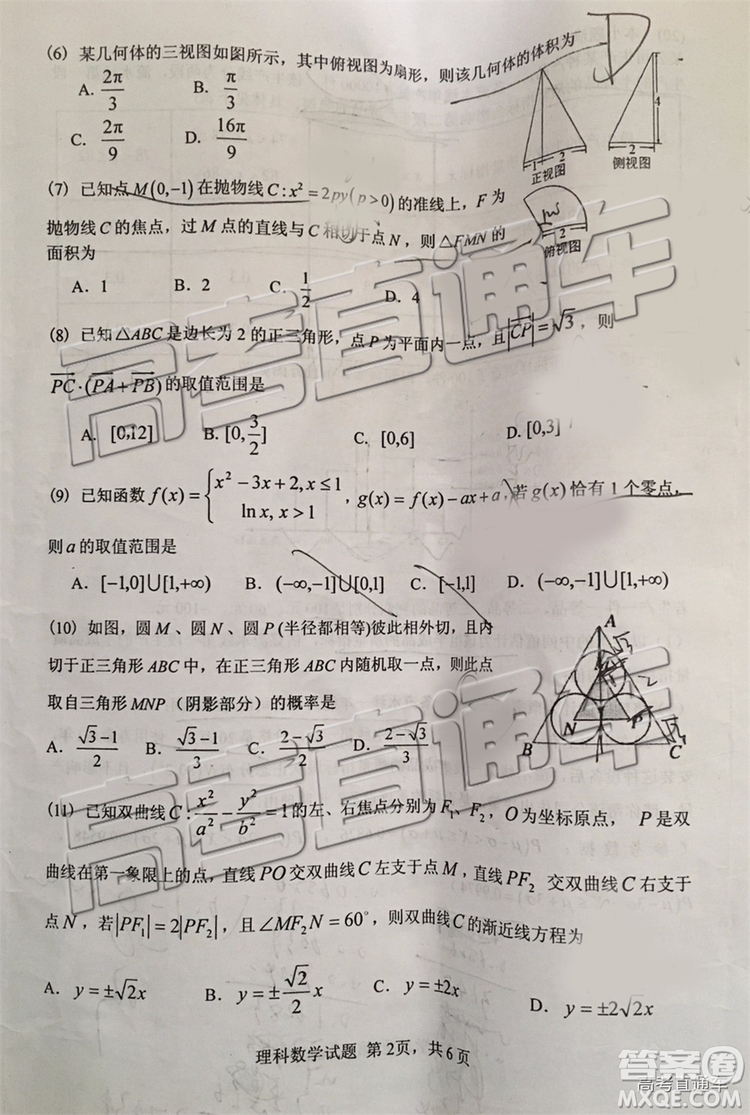 (6) 某几何体的三视图如图所示，其中俯视图为扇形，则该几何体的体积为
A. 2π/3 B. π/3
C. 2π/9 D. 16π/9
4
1 2
正视图
2
侧视图
2
俯视图
(7) 已知点 M(0,−1) 在抛物线 C : x² = 2py(p > 0) 的准线上，F 为
抛物线 C 的焦点，过 M 点的直线与 C 相切于点 N，则 △FMN 的
面积为
A. 1 B. 2 C. 1/2 D. 4
(8) 已知 △ABC 是边长为 2 的正三角形，点 P 为平面内一点，且 |CP| = √3，则
PC · (PA + PB) 的取值范围是
A. [0,12] B. [0, 3/2] C. [0,6] D. [0,3]
(9) 已知函数 f(x) = { x² − 3x + 2, x ≤ 1
ln x, x > 1 ，g(x) = f(x) − ax + a，若 g(x) 恰有 1 个零点，
则 a 的取值范围是
A. [−1,0]∪[1,+∞) B. (−∞,−1]∪[0,1] C. [−1,1] D. (−∞,−1]∪[1,+∞)
(10) 如图，圆 M 、圆 N 、圆 P (半径都相等)彼此相外切，且内
切于正三角形 ABC 中，在正三角形 ABC 内随机取一点，则此点
取自三角形 MNP（阴影部分）的概率是
A. (√3−1)/2 B. (√3−1)/3 C. (2−√3)/2 D. (2−√3)/3
A
N P
B C
(11) 已知双曲线 C : x²/a² − y²/b² = 1 的左、右焦点分别为 F₁、F₂，O 为坐标原点， P 是双
曲线在第一象限上的点，直线 PO 交双曲线 C 左支于点 M，直线 PF₂ 交双曲线 C 右支于
点 N，若 |PF₁| = 2|PF₂|，且 ∠MF₂N = 60°，则双曲线 C 的渐近线方程为
A. y = ±√2x B. y = ±√2/2 x C. y = ±2x D. y = ±2√2x
理科数学试题 第 2 页，共 6 页
高考直通车
高考直通车
答案圈
高考直通车
MXQE.COM